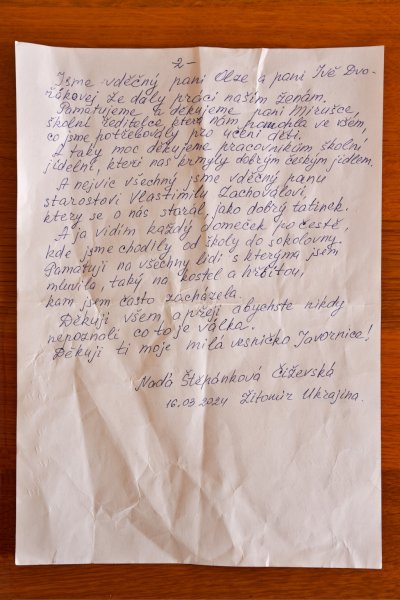 2-
Jsme vděčný pani Olze a pani Ivě Dvo-
řákovej že dály práci našim ženám,
Pamatujeme a děkujeme pani Mirušce,
školní řaditelce která nám pomohla ve všem,
co jme potřebovaly pro učeni dětí.
I taky moc děkujeme pracovnikům školní
jidelni, kteri nas krmyly dobrým českým jidlem.
A nejvic všechný jsme vděčný panu
starostovi Vlastimilu Zachovalovi,
ktery se o nás staral, jako dobrý tatinek.
A ja vidím každý domeček po česté,
kde jsme chodily od školy do sokolovny.
Pamatuji na všechny lidi s kteryma jsem
mluvila, taký na kostel a hřbitov,
kam jsem často zacházela.
Děkuji všem, a přeji abychste nikdy
nepoznali, co to je válka.
Děkuji ti moje milá vesničko Javornice!
Nadá Štěpánková Čiževská
16.03.2024 Žitomir Ukrajina.